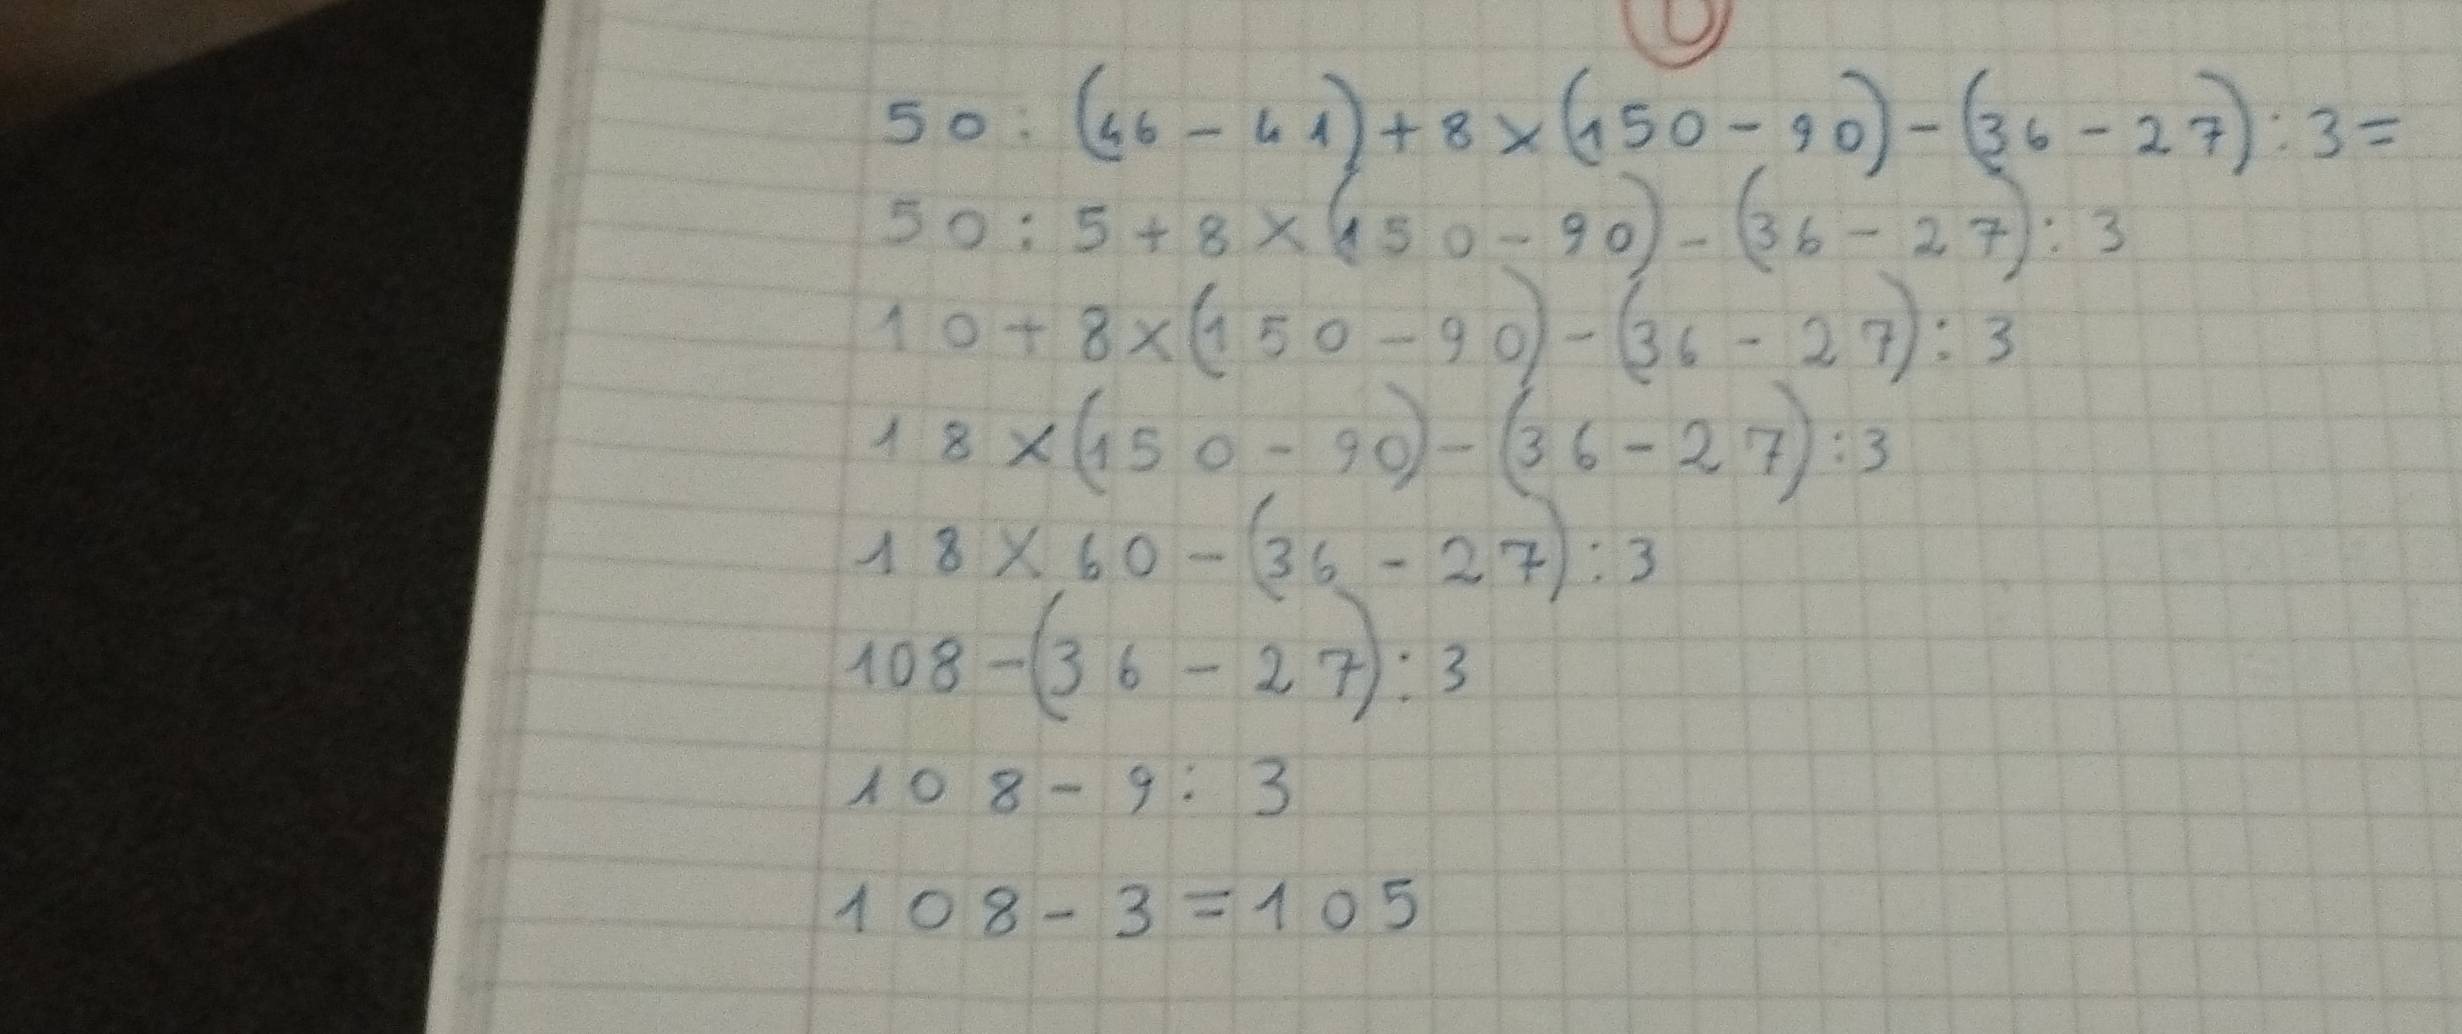 50 : (46 - 41) + 8 × (150 - 90) - (36 - 27) : 3 =
50 : 5 + 8 × (150 - 90) - (36 - 27) : 3
10 + 8 × (150 - 90) - (36 - 27) : 3
18 × (150 - 90) - (36 - 27) : 3
18 × 60 - (36 - 27) : 3
108 - (36 - 27) : 3
108 - 9 : 3
108 - 3 = 105